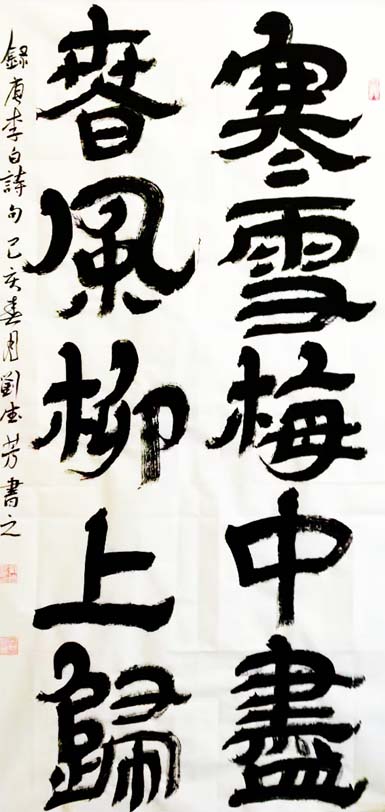 寒雪梅中盡
春風柳上歸
錄唐李白詩句己亥春月劉生芳書之